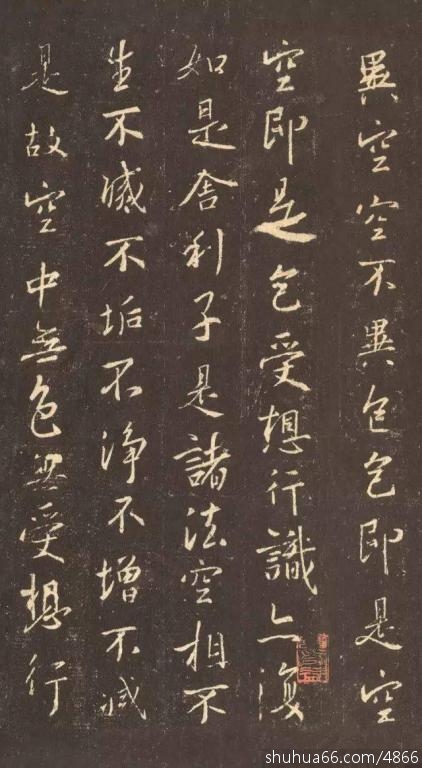 異空空不異色色即是空
空即是色受想行識亦復
如是舍利子是諸法空相不
生不滅不垢不淨不增不減
是故空中無色無受想行
shuhua66.com/4866